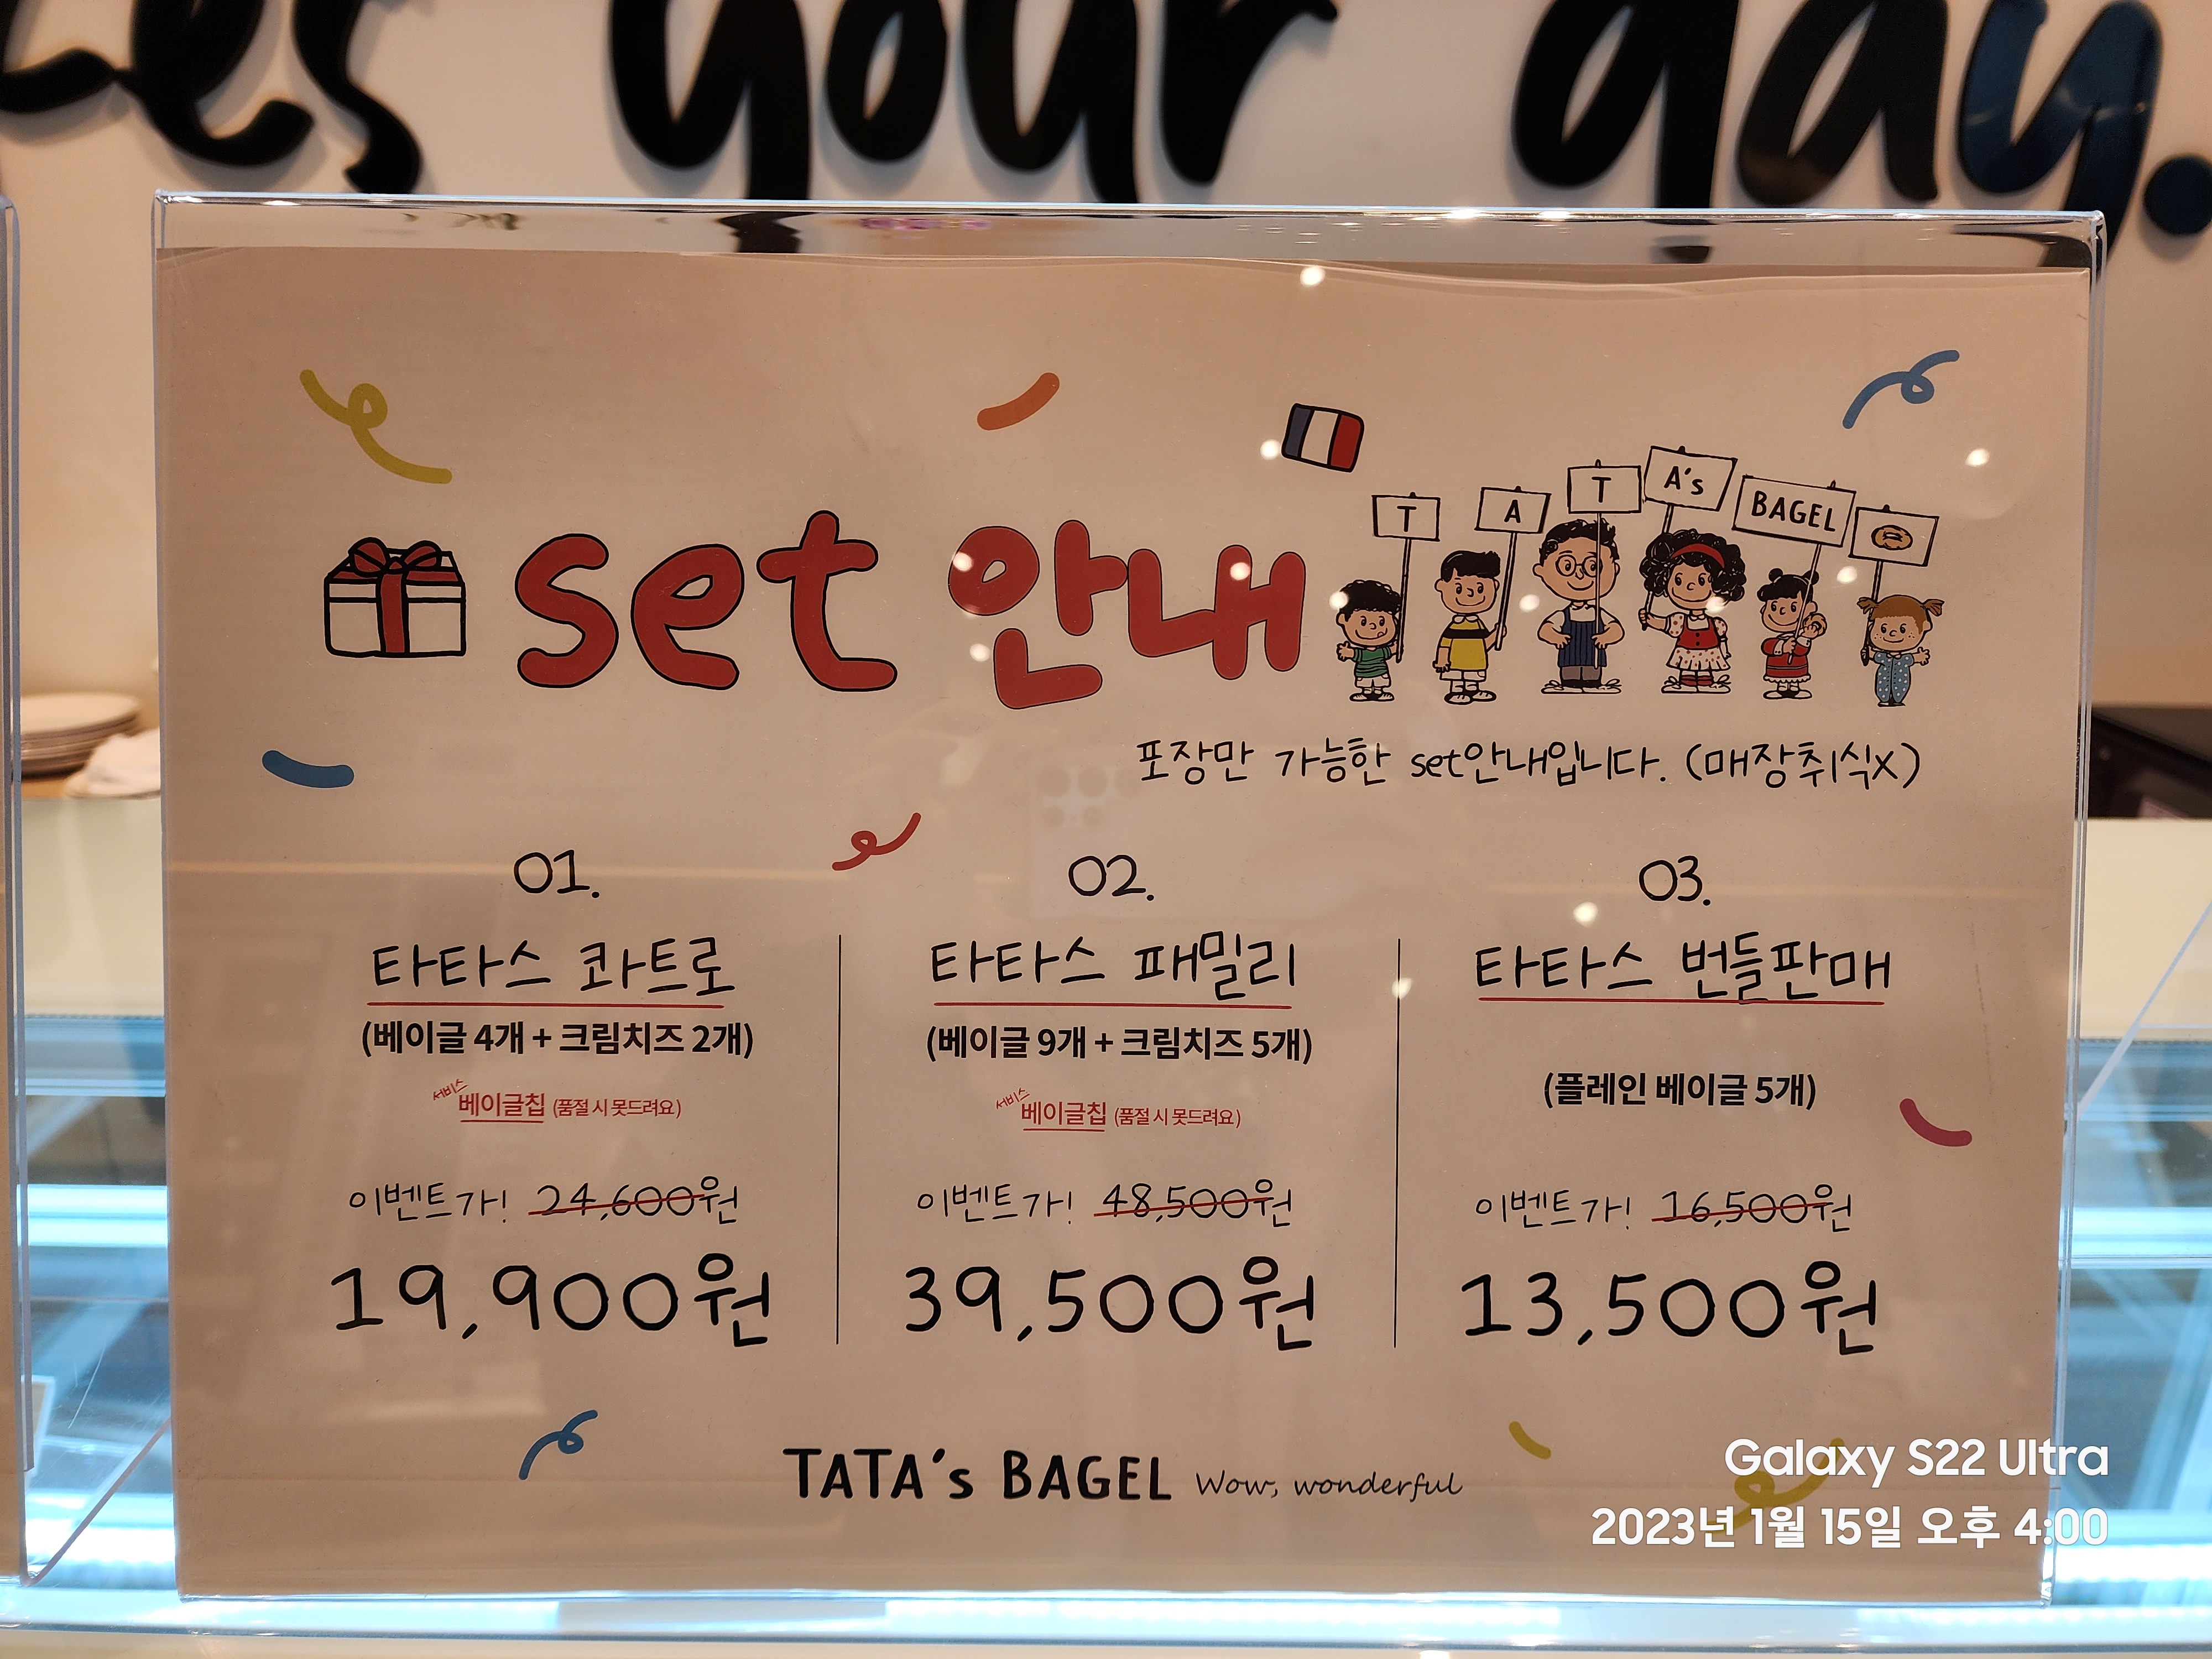 tes your day.
T
A
T
A's
BAGEL
set 안내
포장만 가능한 set안내입니다. (매장취식X)
01.
타타스 콰트로
(베이글 4개 + 크림치즈 2개)
서비스
베이글칩 (품절 시 못드려요)
이벤트가! 24,600원
19,900원
02.
타타스 패밀리
(베이글 9개 + 크림치즈 5개)
서비스
베이글칩 (품절 시 못드려요)
이벤트가! 48,500원
39,500원
03.
타타스 번들판매
(플레인 베이글 5개)
이벤트가! 16,500원
13,500원
TATA's BAGEL Wow, wonderful
Galaxy S22 Ultra
2023년 1월 15일 오후 4:00